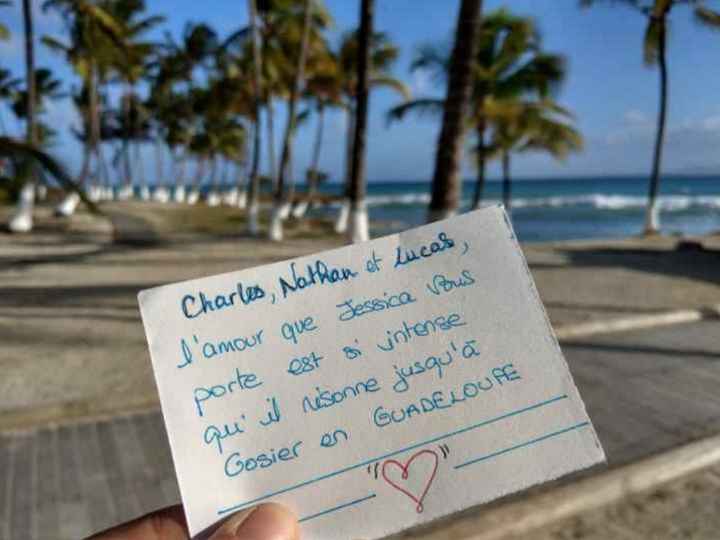 Charles, Nathan et Lucas,
l'amour que Jessica vous
porte est si intense
qu'il résonne jusqu'à
Gosier en GUADELOUPE